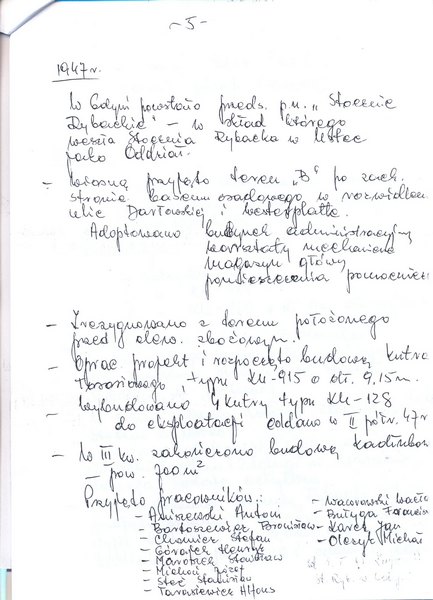 - 5 -
1947 r.
W Gdyni powstało przeds. p.n. „Stocznie
Rybackie" - w skład którego
weszła Stocznia Rybacka w Ustce
jako Oddział.
- Wiosną przyjęto teren „B" po zach.
stronie basenu osadowego w rozwidlen.
ulic Darłowskiej i Westerplatte.
Adoptowano budynek administracyjny
warsztaty mechaniczne
magazyn główny
pomieszczenia pomocnicze
- Zrezygnowano z terenu położonego
przed elew. zbożowym.
- Oprac. projekt i rozpoczęto budowę kutra
typu KU-915 o dł. 9,15 m.
- Wybudowano 4 kutry typu KU-128
do eksploatacji oddano w II półr. 47 r
- W III kw. zakończono budowę
- pow. 700 m²
Przyjęto pracowników:
- Aniszewski Antoni
- Bartoszewicz Bronisław
- Chomicz Stefan
- Górójek Henryk
- Marotzek Stanisław
- Michoń Józef
- Steć Stanisław
- Tarasiewicz Alfons
- Wacorowski Wacła
- Bułyga Franciszek
- Karek Jan
- Olszyk Michał